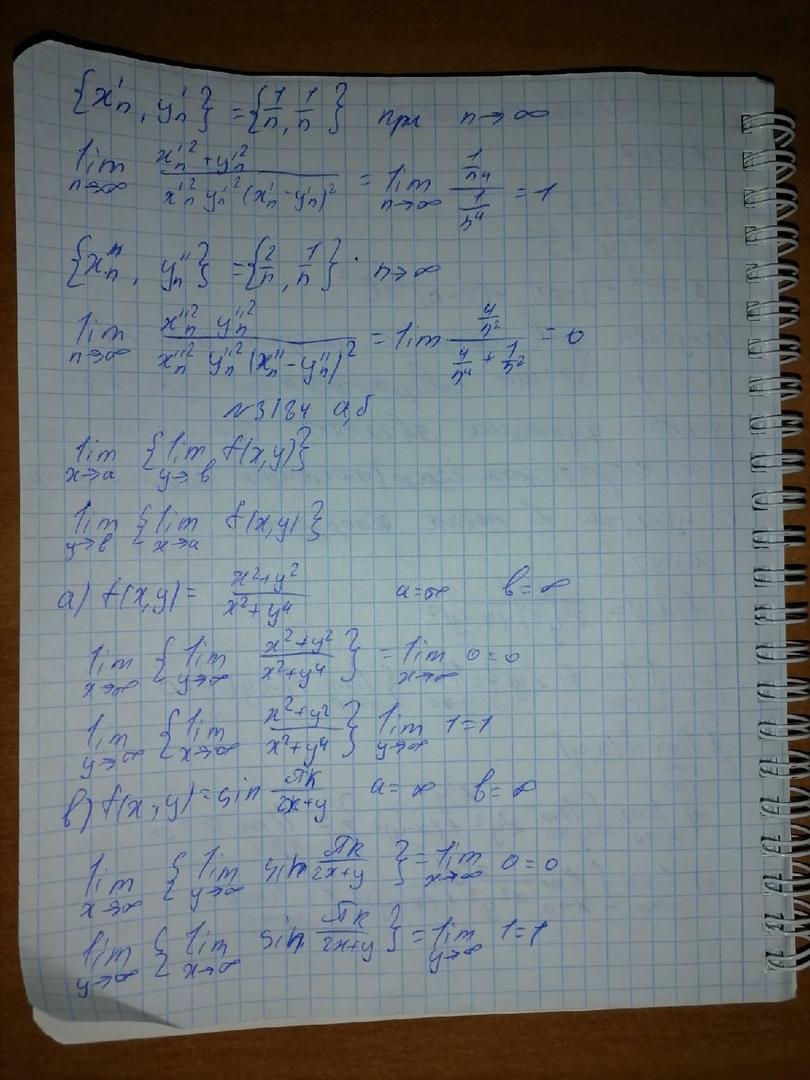 {x'ₙ, y'ₙ} = {1/n, 1/n} при n→∞
lim_{n→∞} (x'ₙ² + y'ₙ²)/(x'ₙ² y'ₙ² (x'ₙ - y'ₙ)²) = lim_{n→∞} (1/n⁴)/(1/n⁴) = 1
{x''ₙ, y''ₙ} = {2/n, 1/n} n→∞
lim_{n→∞} (x''ₙ² y''ₙ²)/(x''ₙ² y''ₙ² (x''ₙ - y''ₙ)²) = lim (4/n²)/(4/n⁴ + 1/n²) = 0
№3184 а,б
lim_{x→a} {lim_{y→b} f(x,y)}
lim_{y→b} {lim_{x→a} f(x,y)}
а) f(x,y) = (x²+y²)/(x²+y⁴) a=∞ b=∞
lim_{x→∞} {lim_{y→∞} (x²+y²)/(x²+y⁴)} = lim_{x→∞} 0=0
lim_{y→∞} {lim_{x→∞} (x²+y²)/(x²+y⁴)} lim_{y→∞} 1=1
в) f(x,y) = sin πx/(2x+y) a=∞ b=∞
lim_{x→∞} {lim_{y→∞} sin πx/(2x+y)} = lim_{x→∞} 0=0
lim_{y→∞} {lim_{x→∞} sin πx/(2x+y)} = lim_{y→∞} 1=1